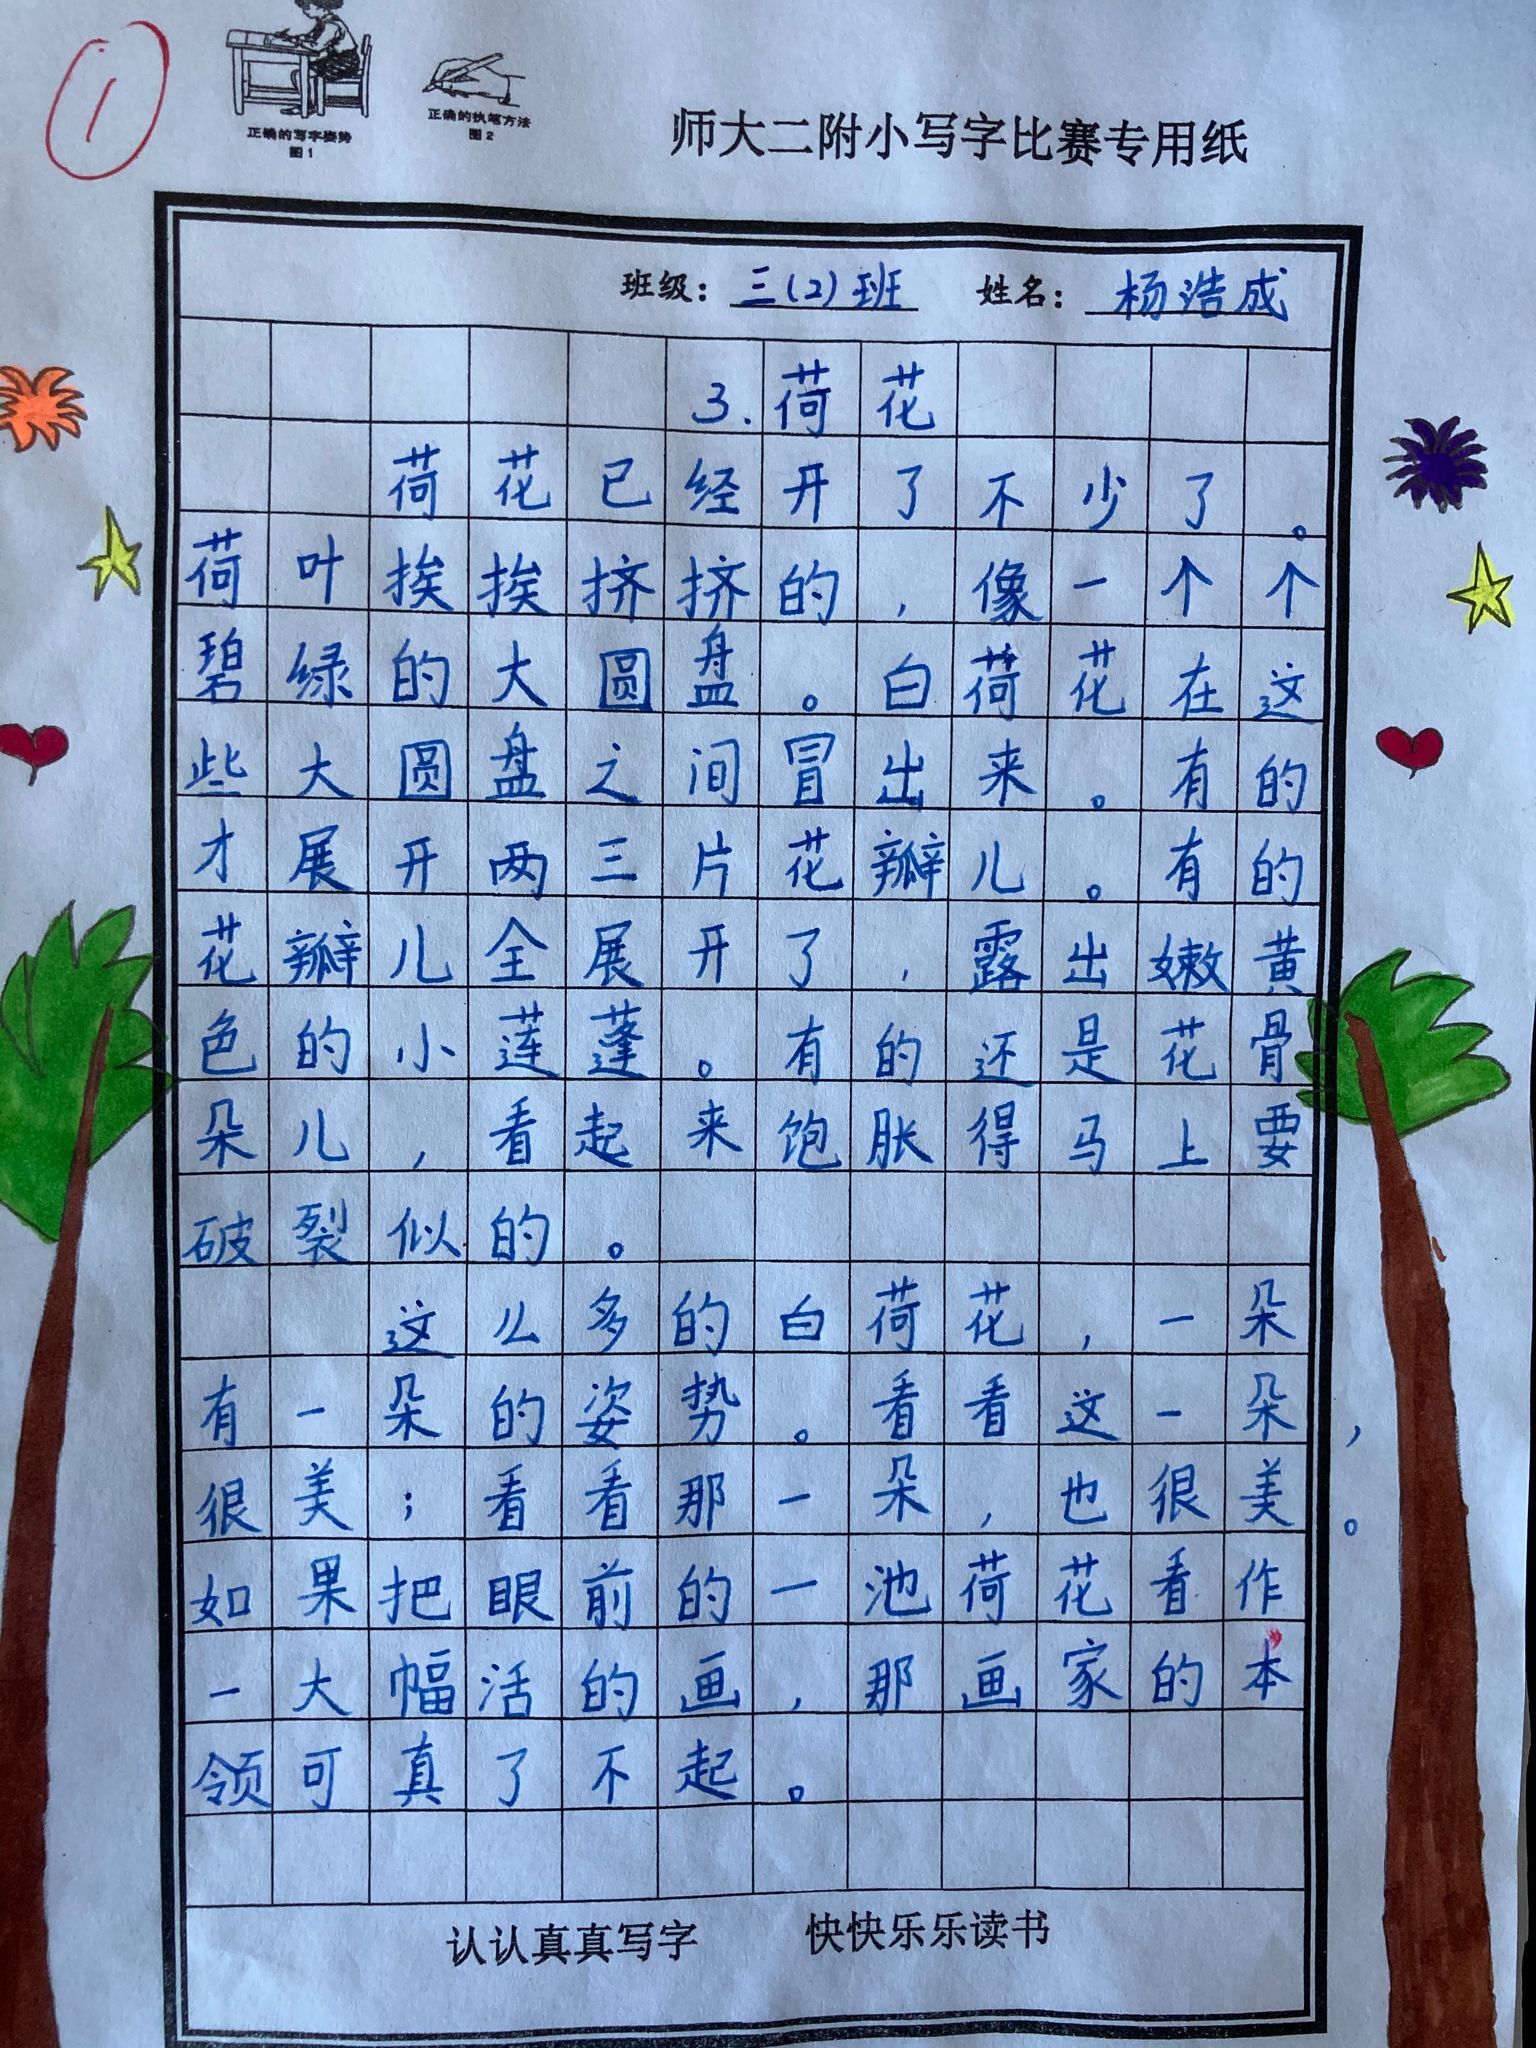 ①
正确的写字姿势
图1
正确的执笔方法
图2
师大二附小写字比赛专用纸
班级：三(2)班 姓名：杨浩成
3.荷花
荷花已经开了不少了。
荷叶挨挨挤挤的，像一个个
碧绿的大圆盘。白荷花在这
些大圆盘之间冒出来。有的
才展开两三片花瓣儿。有的
花瓣儿全展开了，露出嫩黄
色的小莲蓬。有的还是花骨
朵儿，看起来饱胀得马上要
破裂似的。
这么多的白荷花，一朵
有一朵的姿势。看看这一朵，
很美；看看那一朵，也很美。
如果把眼前的一池荷花看作
一大幅活的画，那画家的本
领可真了不起。
认认真真写字 快快乐乐读书